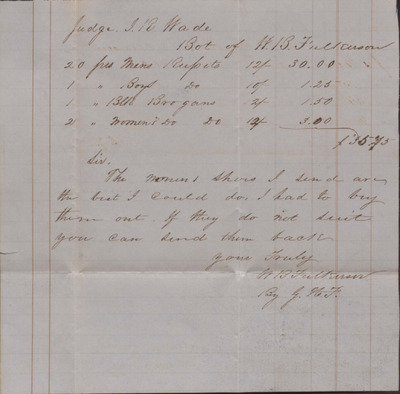 Judge. I. R. Wade
Bot of W. B. Fulkerson
20 prs Mens Russets 12/ 30.00
1 " Boys Do 10/ 1.25
1 " Blk Brogans 12/ 1.50
2 " Women's Do Do 12/ 3.00
$35.75
Sir.
The womens shoes I send are
the best I could do. I had to buy
them out. If they do not suit
you can send them back
yours Truly
W B Fulkerson
By G. W F.